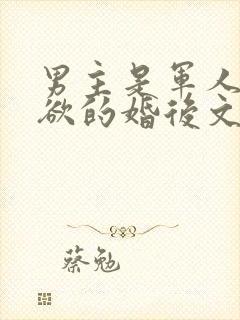 男主是軍人
欲的婚後文
蔡勉